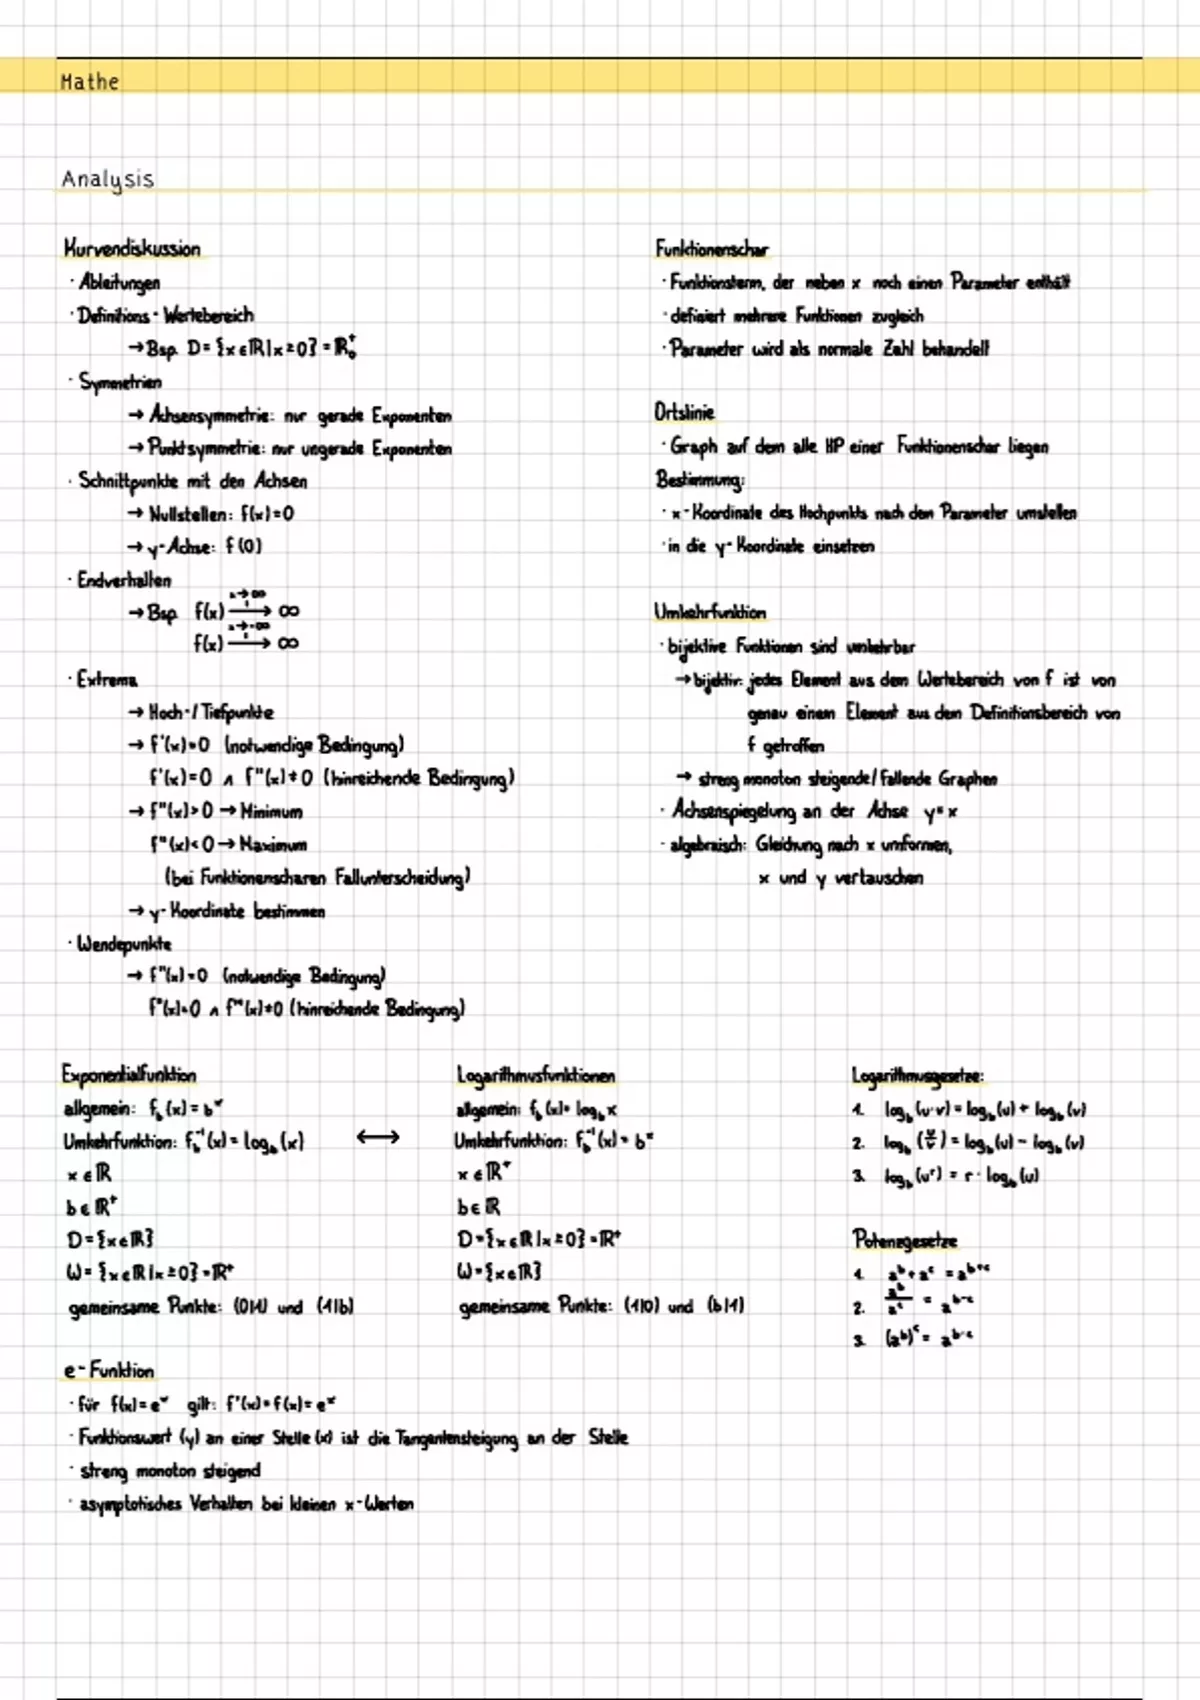 Mathe
Analysis
Kurvendiskussion
· Ableitungen
· Definitions- Wertebereich
→ Bsp. D = {x ∈ ℝ | x ≥ 0} = ℝ₀⁺
· Symmetrien
→ Achsensymmetrie: nur gerade Exponenten
→ Punktsymmetrie: nur ungerade Exponenten
· Schnittpunkte mit den Achsen
→ Nullstellen: f(x) = 0
→ y-Achse: f(0)
· Endverhalten
→ Bsp. f(x) —x→∞→ ∞
f(x) —x→-∞→ ∞
· Extrema
→ Hoch-/Tiefpunkte
→ f'(x) = 0 (notwendige Bedingung)
f'(x) = 0 ∧ f''(x) ≠ 0 (hinreichende Bedingung)
→ f''(x) > 0 → Minimum
f''(x) < 0 → Maximum
(bei Funktionenscharen Fallunterscheidung)
→ y-Koordinate bestimmen
· Wendepunkte
→ f''(x) = 0 (notwendige Bedingung)
f''(x) = 0 ∧ f'''(x) ≠ 0 (hinreichende Bedingung)
Funktionenschar
· Funktionsterm, der neben x noch einen Parameter enthält
· definiert mehrere Funktionen zugleich
· Parameter wird als normale Zahl behandelt
Ortslinie
· Graph auf dem alle HP einer Funktionenschar liegen
Bestimmung:
· x-Koordinate des Hochpunkts nach dem Parameter umstellen
· in die y-Koordinate einsetzen
Umkehrfunktion
· bijektive Funktionen sind umkehrbar
→ bijektiv: jedes Element aus dem Wertebereich von f ist von
genau einem Element aus dem Definitionsbereich von
f getroffen
→ streng monoton steigende/fallende Graphen
· Achsenspiegelung an der Achse y = x
· algebraisch: Gleichung nach x umformen,
x und y vertauschen
Exponentialfunktion
allgemein: f_b(x) = b^x
Umkehrfunktion: f_b^-1(x) = log_b(x) ⟷
x ∈ ℝ
b ∈ ℝ⁺
D = {x ∈ ℝ}
W = {x ∈ ℝ | x ≥ 0} = ℝ⁺
gemeinsame Punkte: (0|1) und (1|b)
Logarithmusfunktionen
allgemein: f_b(x) = log_b x
Umkehrfunktion: f_b^-1(x) = b^x
x ∈ ℝ⁺
b ∈ ℝ
D = {x ∈ ℝ | x ≥ 0} = ℝ⁺
W = {x ∈ ℝ}
gemeinsame Punkte: (1|0) und (b|1)
Logarithmusgesetze:
1. log_b(u·v) = log_b(u) + log_b(v)
2. log_b(u/v) = log_b(u) - log_b(v)
3. log_b(u^r) = r · log_b(u)
Potenzgesetze
1. a^b + a^c = a^b+c
2. a^b/a^c = a^b-c
3. (a^b)^c = a^b·c
e-Funktion
· für f(x) = e^x gilt: f'(x) = f(x) = e^x
· Funktionswert (y) an einer Stelle (x) ist die Tangentensteigung an der Stelle
· streng monoton steigend
· asymptotisches Verhalten bei kleinen x-Werten